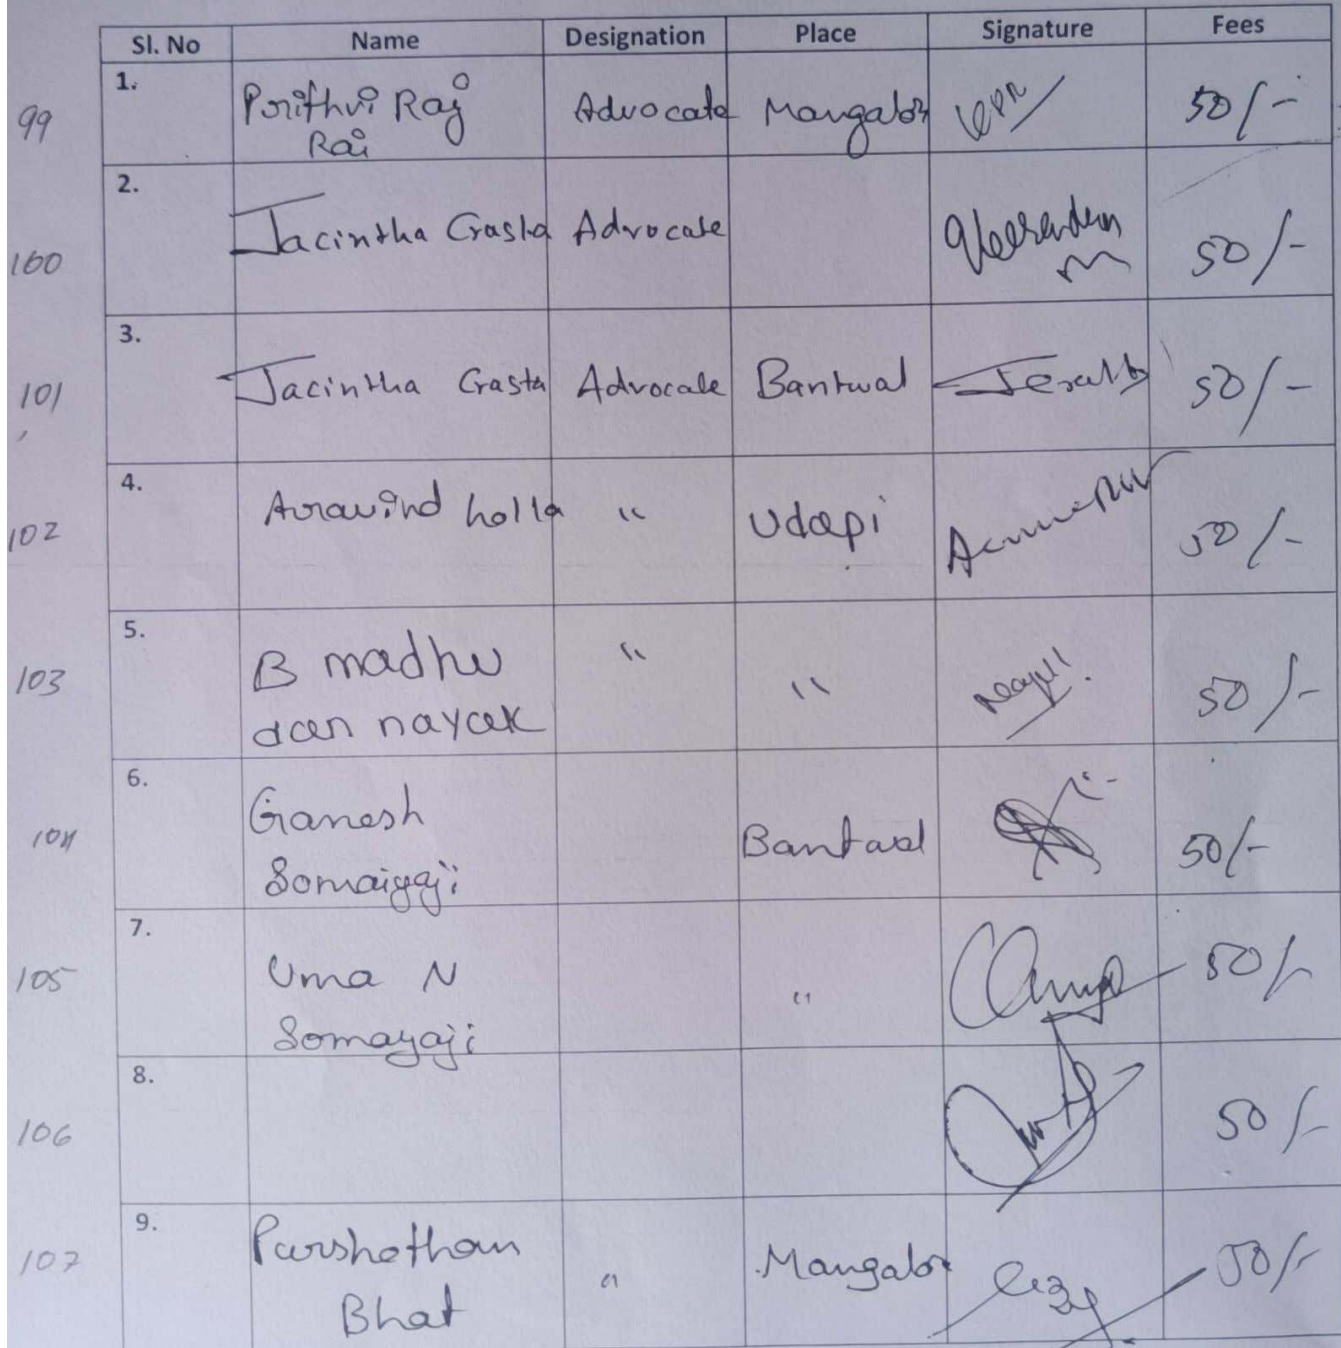 Sl. No Name Designation Place Signature Fees
99 1. Prithvi Raj Advocate Mangalore 50/-
Rai
100 2. Jacintha Crasta Advocate 50/-
101 3. Jacintha Crasta Advocate Bantwal 50/-
102 4. Aravind holla " Udapi 50/-
103 5. B madhu " " 50/-
dan nayak
104 6. Ganesh Bantwal 50/-
Somaiyaji
105 7. Uma N " 50/-
Somayaji
106 8. 50/-
107 9. Purshotham " Mangalore 50/-
Bhat